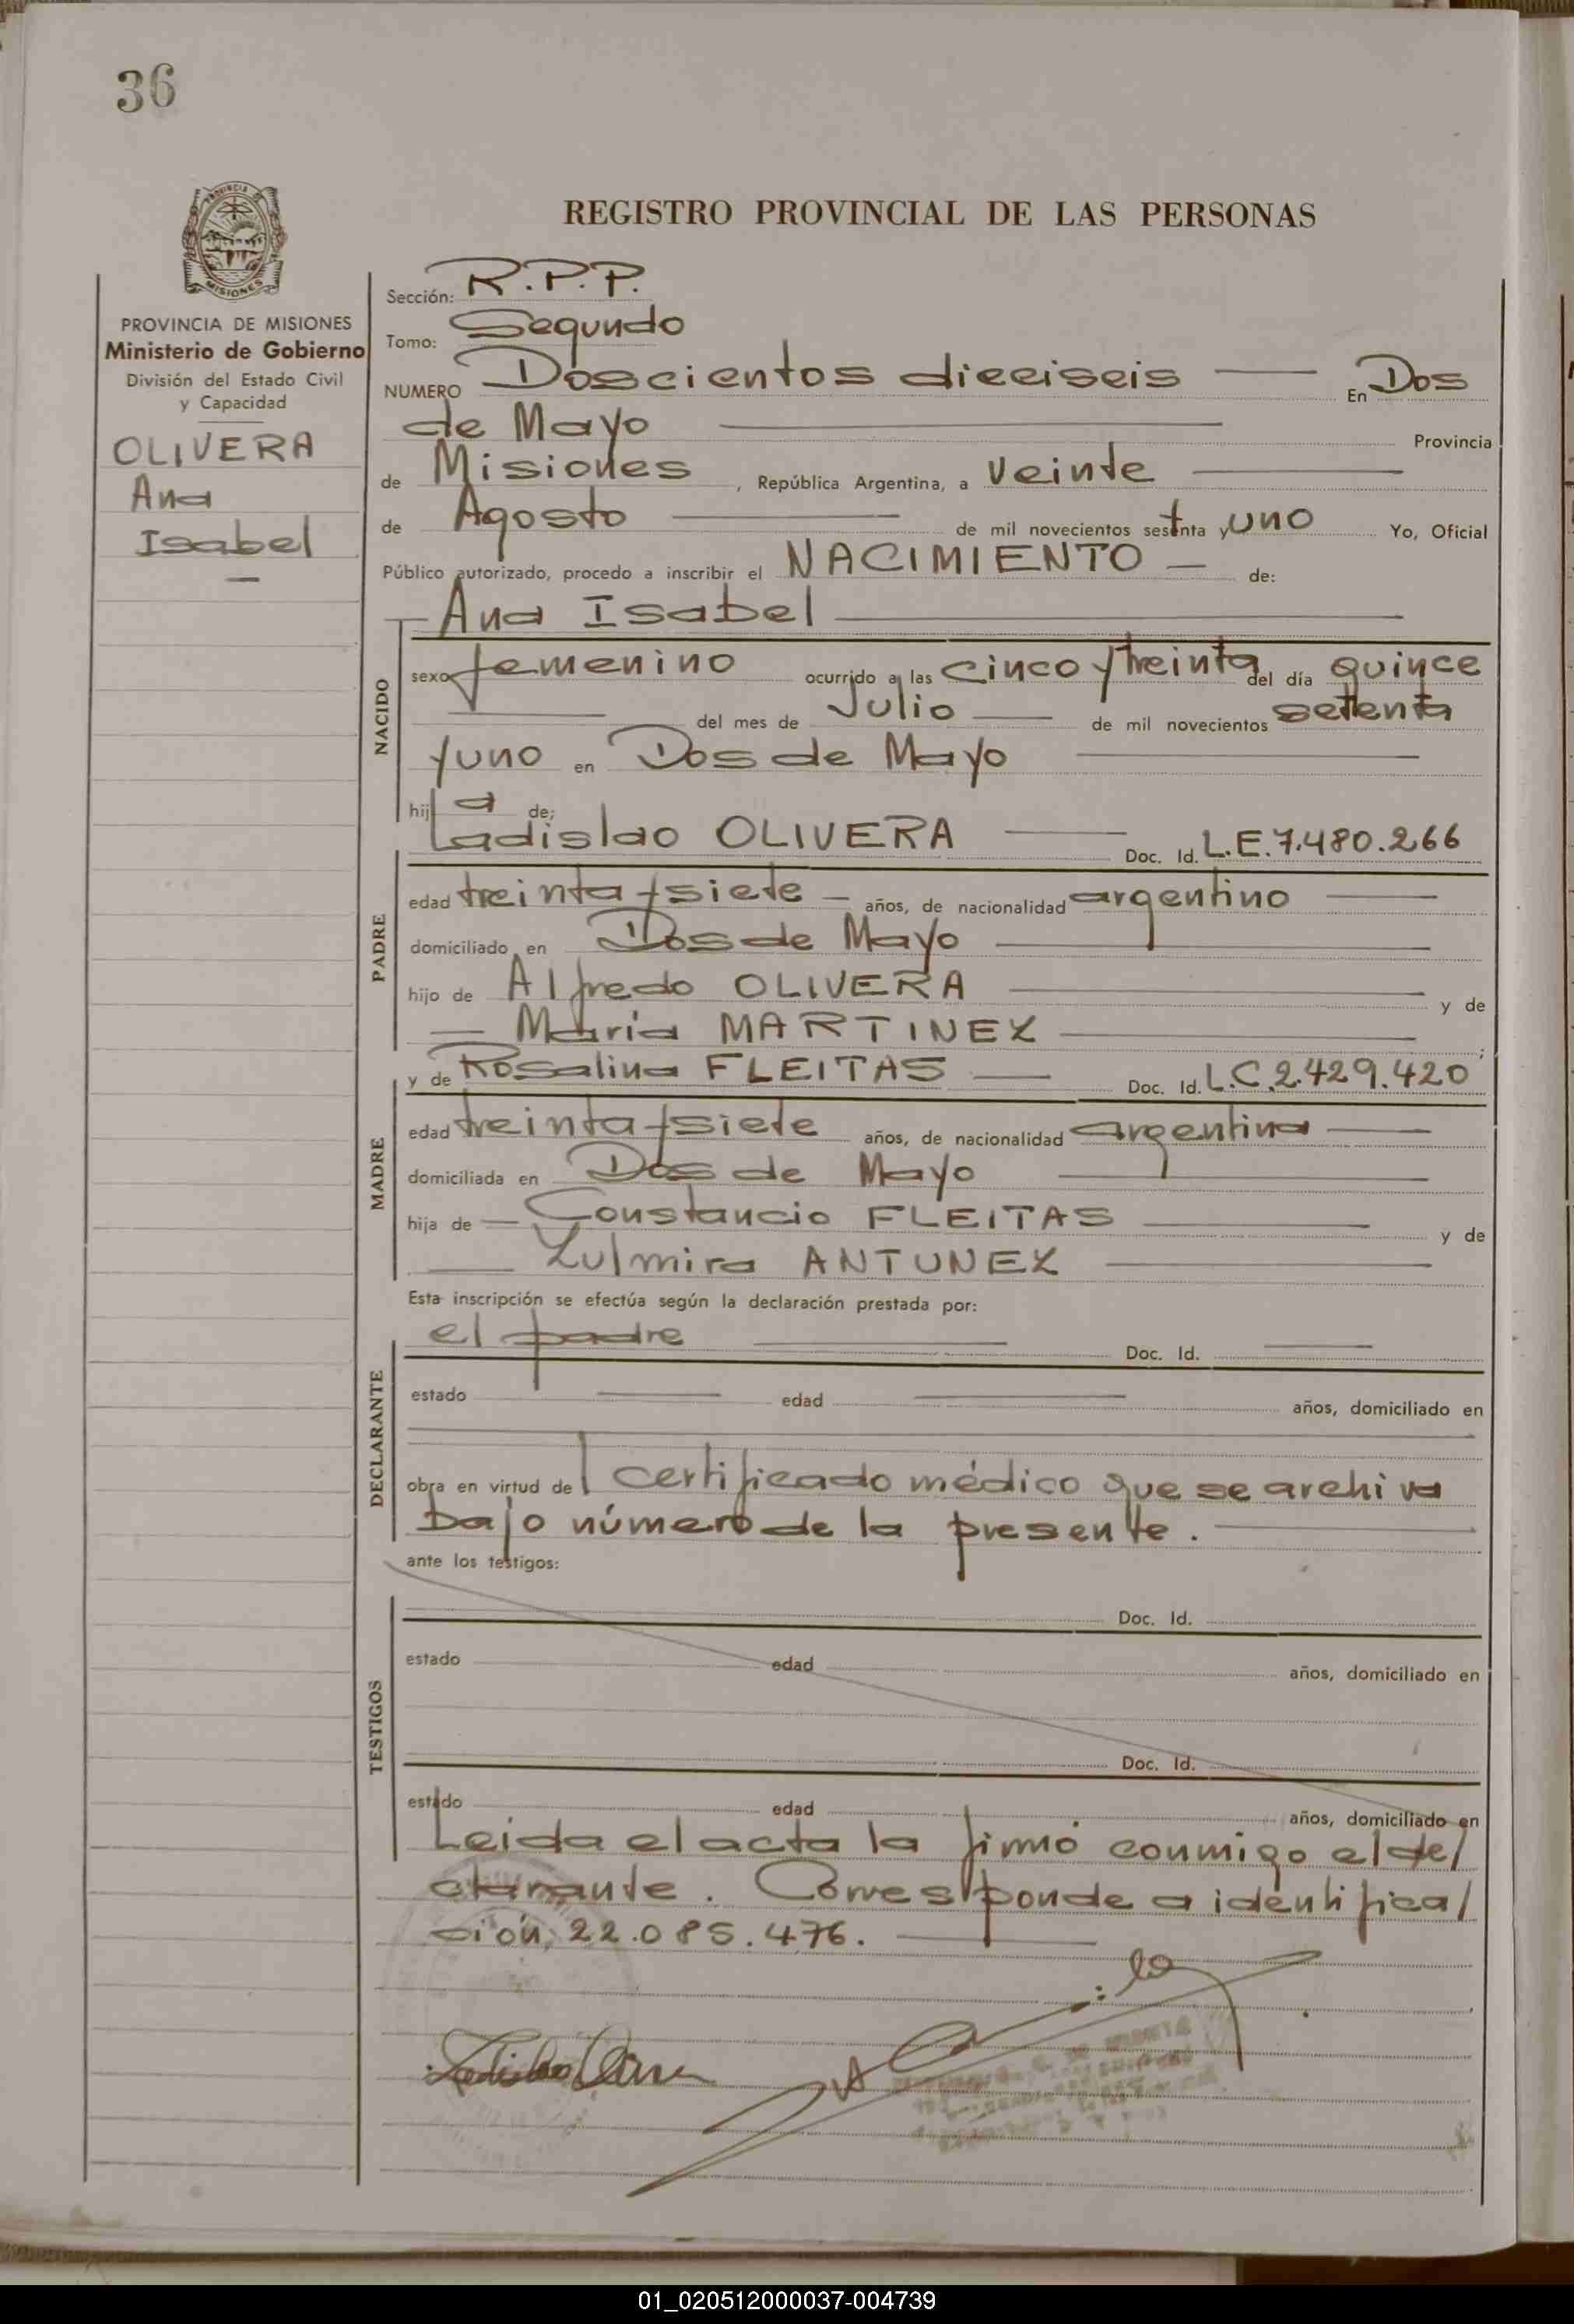 36
PROVINCIA
MISIONES
PROVINCIA DE MISIONES
Ministerio de Gobierno
División del Estado Civil
y Capacidad
OLIVERA
Ana
Isabel
REGISTRO PROVINCIAL DE LAS PERSONAS
Sección: R.P.P.
Tomo: Segundo
NUMERO Doscientos dieciseis En Dos
de Mayo Provincia
de Misiones, República Argentina, a Veinte
de Agosto de mil novecientos setenta y uno Yo, Oficial
Público autorizado, procedo a inscribir el NACIMIENTO de:
Ana Isabel
NACIDO
sexo femenino ocurrido a las cinco y treinta del día quince
del mes de Julio de mil novecientos setenta
y uno en Dos de Mayo
hija de;
Ladislao OLIVERA Doc. Id. L.E.7.480.266
PADRE
edad treinta y siete años, de nacionalidad argentino
domiciliado en Dos de Mayo
hijo de Alfredo OLIVERA y de
María MARTINEZ;
y de Rosalina FLEITAS Doc. Id. L.C.2.429.420
MADRE
edad treinta y siete años, de nacionalidad argentina
domiciliada en Dos de Mayo
hija de Constancio FLEITAS y de
Zulmira ANTUNEZ
Esta inscripción se efectúa según la declaración prestada por:
el padre Doc. Id.
DECLARANTE
estado edad años, domiciliado en
obra en virtud del certificado médico que se archiva
bajo número de la presente.
ante los testigos:
TESTIGOS
Doc. Id.
estado edad años, domiciliado en
Doc. Id.
estado edad años, domiciliado en
Leida el acta la firmó conmigo el de/
clarante. Corresponde a identifica/
ción, 22.085.476.
01_020512000037-004739